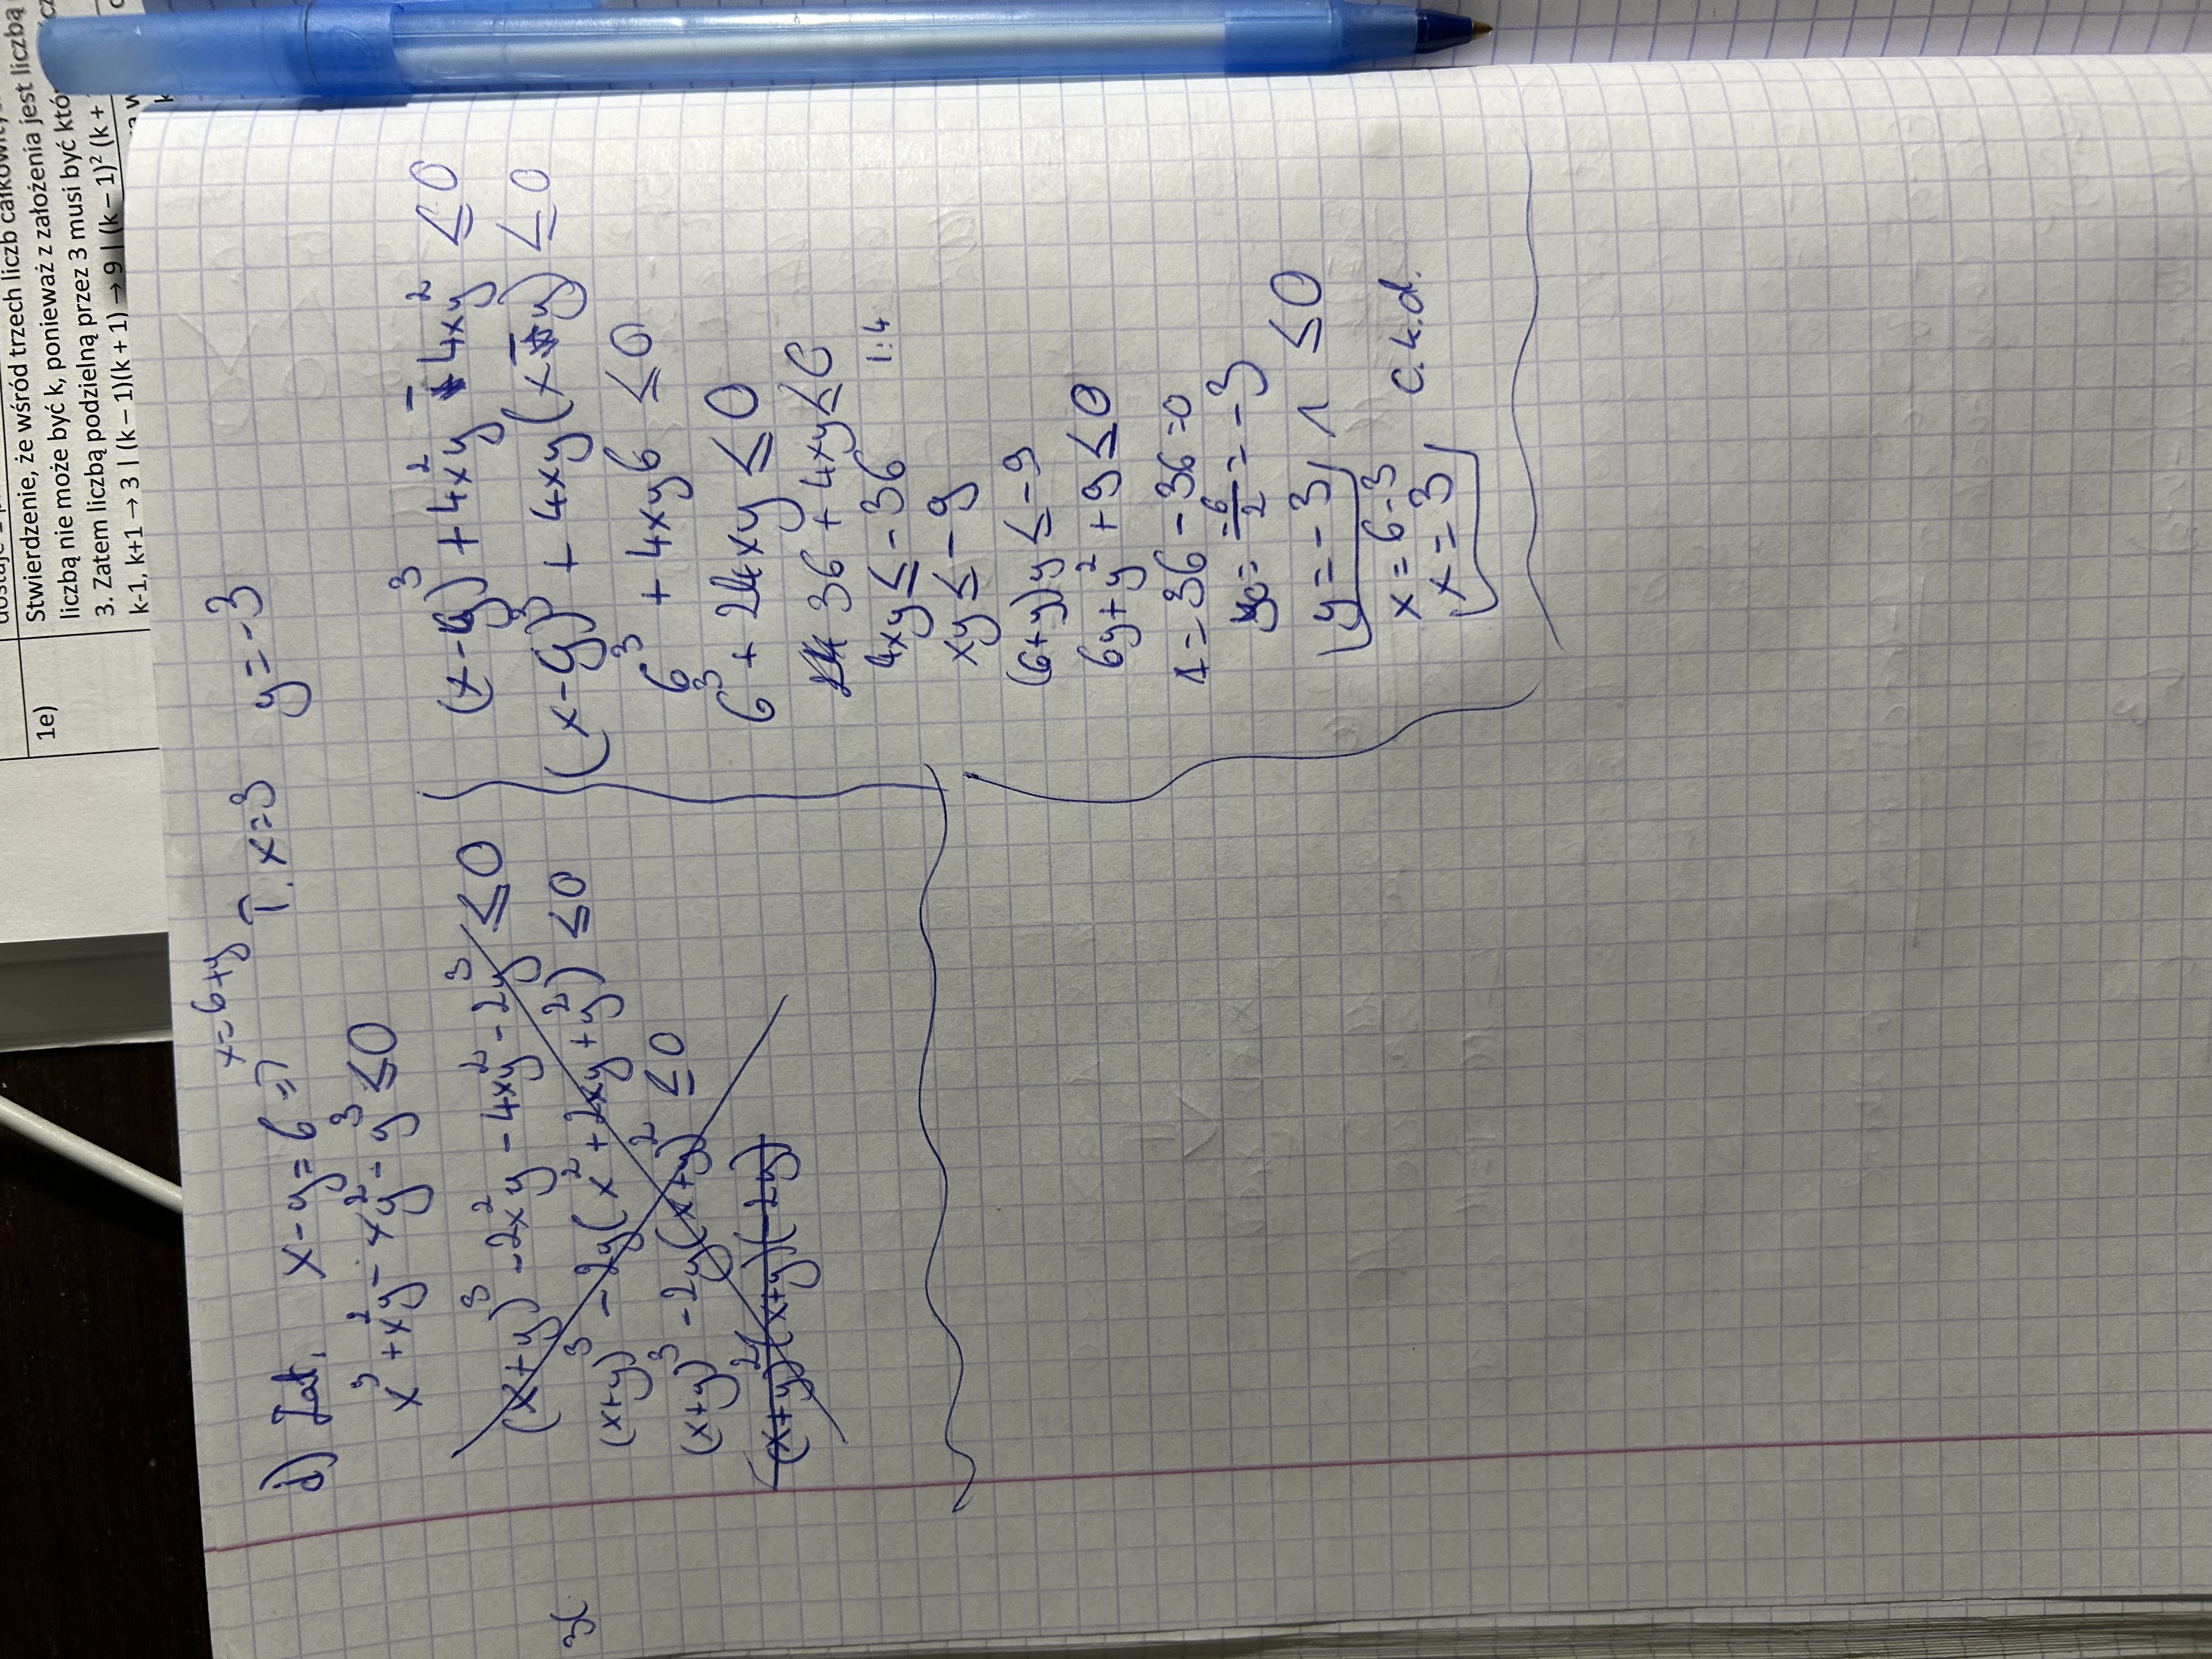 1e)
Stwierdzenie, że wśród trzech liczb całkowity
liczbą nie może być k, ponieważ z założenia jest liczbą
3. Zatem liczbą podzielną przez 3 musi być któ
k-1, k+1 → 3 | (k – 1)(k + 1) → 9 | (k – 1)² (k +
d) Zał. x-y=6 => x=6+y T. x=3 y=-3
x³+x²y-xy²-y³≤0
(x+y)³-2x²y-4xy²-2y³≤0
(x+y)³-2y(x²+2xy+y²)≤0
(x+y)³-2y(x+y)²≤0
(x+y)²(x+y)(-2y)
(x-y)³+4x²y-4xy²≤0
(x-y)³+4xy(x-y)≤0
6³+4xy6≤0
6³+24xy≤0
36+4xy≤0
4xy≤-36 |:4
xy≤-9
(6+y)y≤-9
6y+y²+9≤0
Δ=36-36=0
y₀=-6/2=-3
y=-3 ∧ ≤0
x=6-3
x=3 c.k.d.